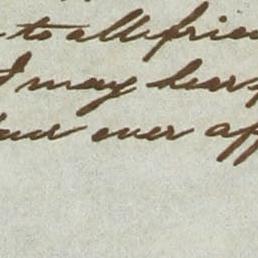 to all frien
I may hear
ever af